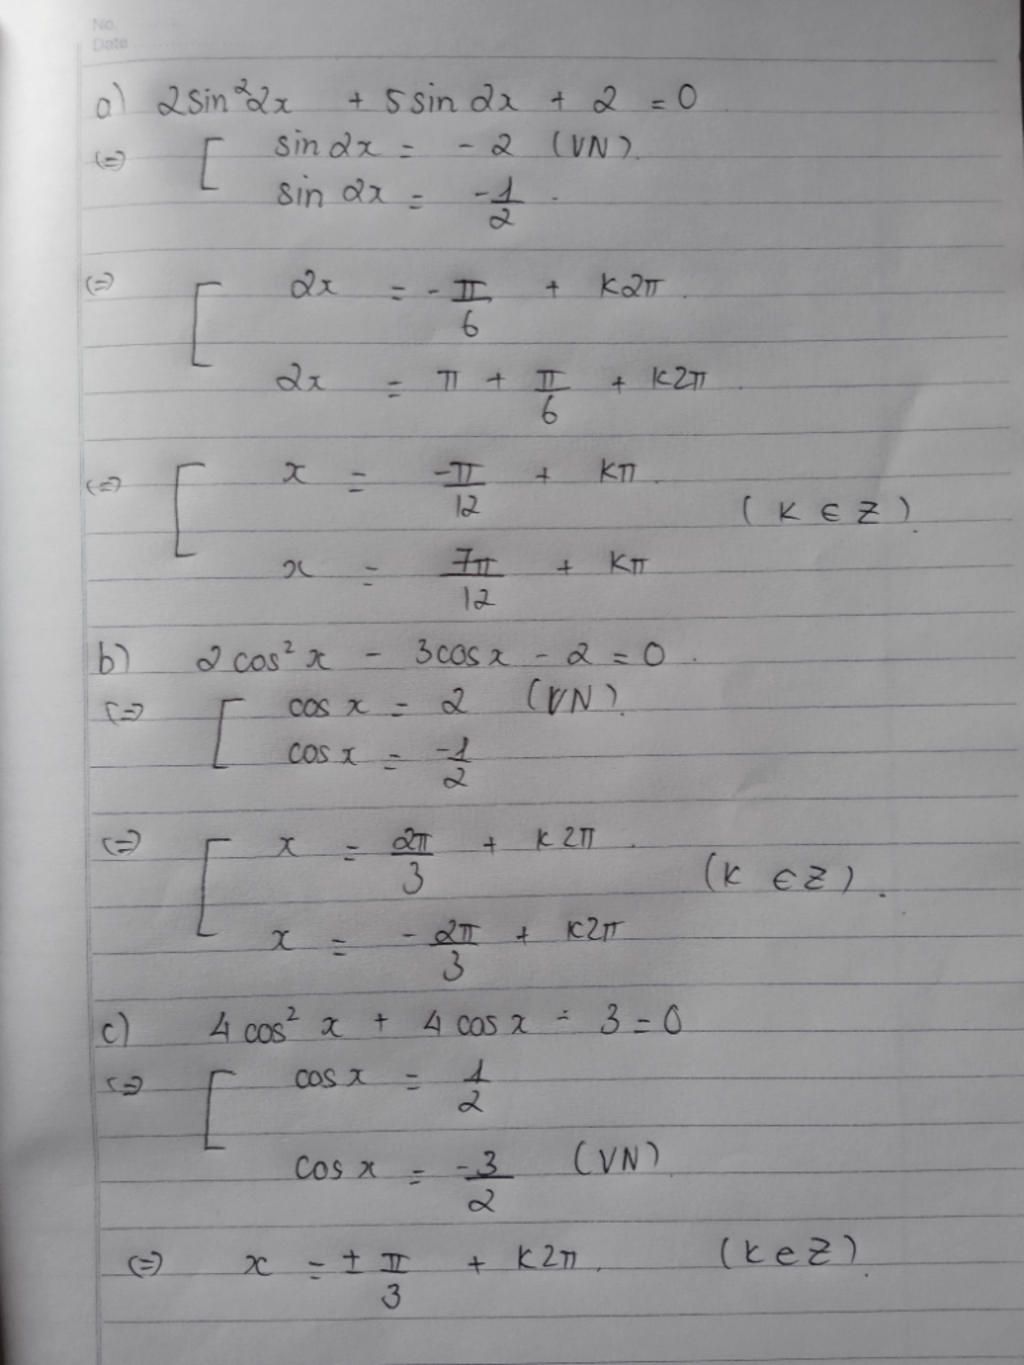 No.
Date
a) 2sin²2x + 5sin 2x + 2 = 0
(=) [ sin 2x = - 2 (VN).
sin 2x = -1/2 .
(=) [ 2x = - π/6 + k2π .
2x = π + π/6 + k2π .
(=) [ x = -π/12 + kπ .
(k ∈ Z).
x = 7π/12 + kπ
b) 2 cos² x - 3cos x - 2 = 0 .
(=) [ cos x = 2 (VN).
cos x = -1/2
(=) [ x = 2π/3 + k2π .
(k ∈ Z) .
x = - 2π/3 + k2π
c) 4 cos² x + 4 cos x - 3 = 0
(=) [ cos x = 1/2
cos x = -3/2 (VN)
(=) x = ± π/3 + k2π . (k ∈ Z).